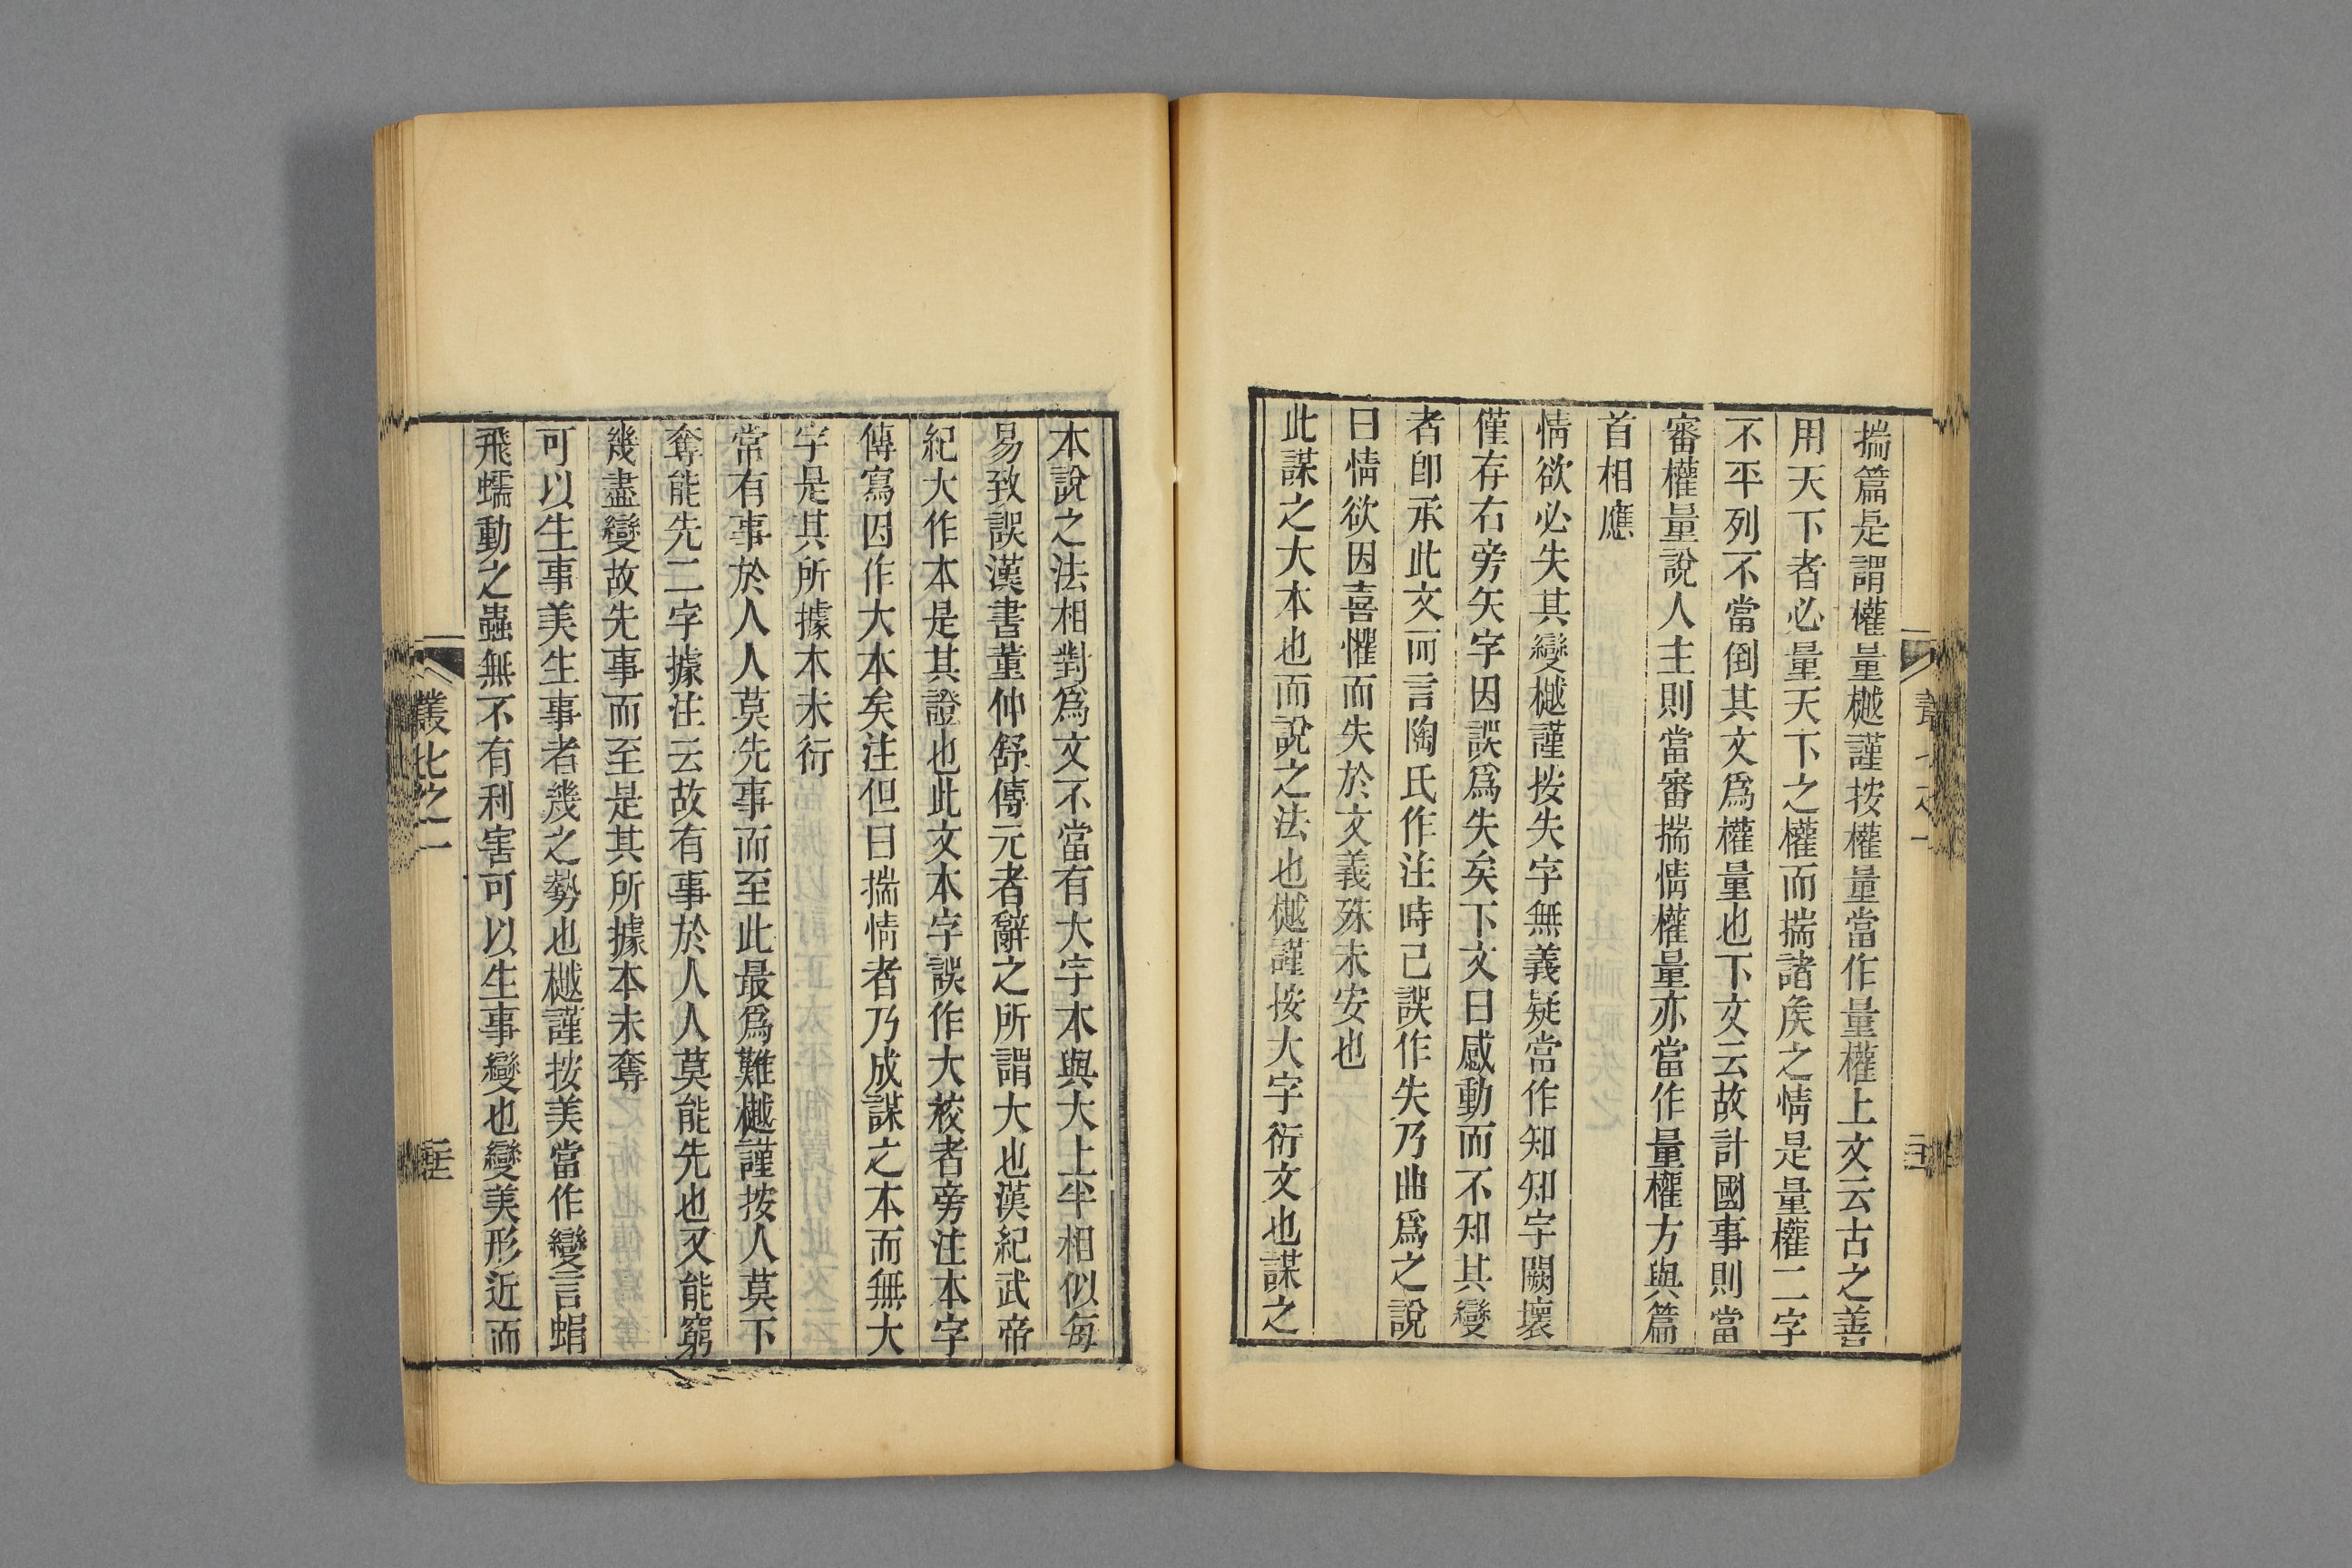 揣篇是謂權量樾謹按權量當作量權上文云古之善
用天下者必量天下之權而揣諸矦之情是量權二字
不平列不當倒其文爲權量也下文云故計國事則當
審權量說人主則當審揣情權量亦當作量權方與篇
首相應
情欲必失其變樾謹按失字無義疑當作知知字闕壞
僅存右旁矢字因誤爲失矣下文曰感動而不知其變
者卽承此文而言陶氏作注時已誤作失乃曲爲之說
曰情欲因喜懼而失於文義殊未安也
此謀之大本也而說之法也樾謹按大字衍文也謀之
本說之法相對爲文不當有大字本與大上半相似每
易致誤漢書董仲舒傳元者辭之所謂大也漢紀武帝
紀大作本是其證也此文本字誤作大校者旁注本字
傳寫因作大本矣注但曰揣情者乃成謀之本而無大
字是其所據本未衍
常有事於人人莫先事而至此最爲難樾謹按人莫下
奪能先二字據注云故有事於人人莫能先也又能窮
幾盡變故先事而至是其所據本未奪
可以生事美生事者幾之勢也樾謹按美當作變言蜎
飛蠕動之蟲無不有利害可以生事變也變美形近而
叢北之一